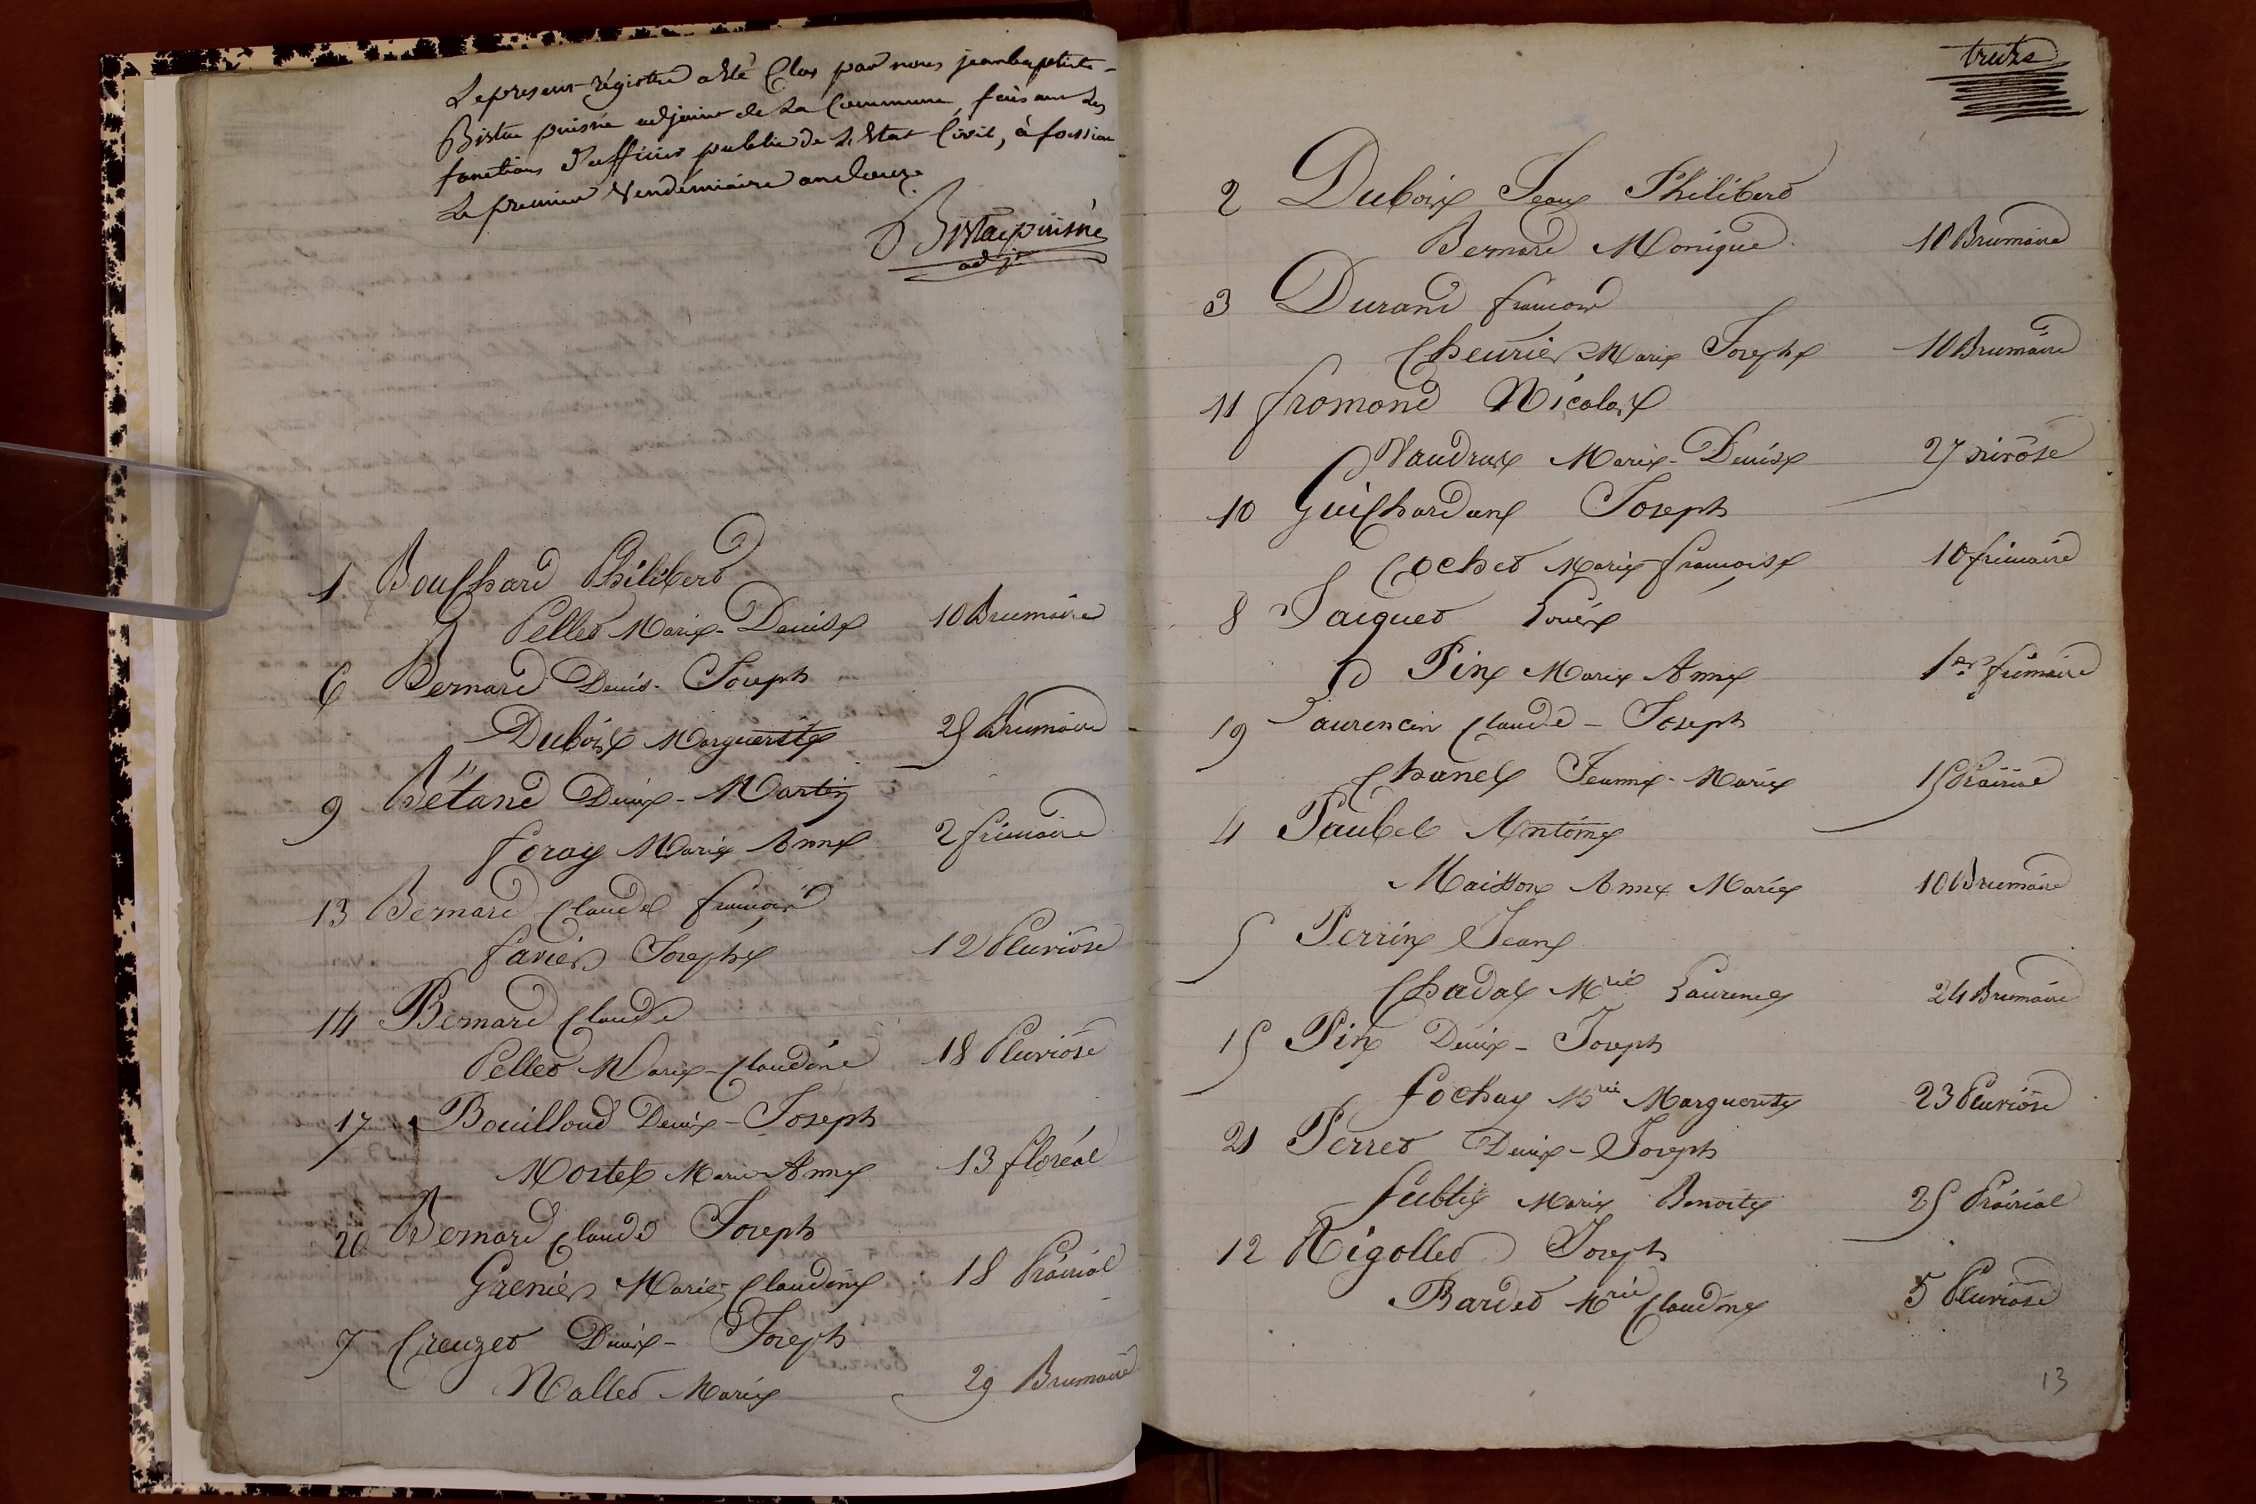 Le present régistre a été Clos par nous jeanbaptiste
Bistac puisné adjoint de La Commune, faisant Les
fonctions d'officier public de L'Etat Civil, à foissiat
Le premier Vendémiaire an douze
Bistac puisné
adjt
1 Bouchard Philibert
Pellet Marie-Denise 10 Brumaire
6 Bernard Denis-Joseph
Dubois Marguerite 25 Brumaire
9 Bétand Denis-Martin
foray Marie Anne 2 frimaire
13 Bernard Claude francois
favier Josephe 12 Pluviôse
14 Bernard Claude
Pellet Marie-Claudine 18 Pluviôse
17 Bouilloud Denis-Joseph
Mortel Marie Anne 13 floréal
20 Bernard Claude Joseph
Grenier Marie-Claudine 18 Prairial
7 Creuzet Denis-Joseph
Nallet Marie 29 Brumaire
treize
2 Dubois Jean Philibert
Bernard Monique 10 Brumaire
3 Durand francois
Cheurier Marie Josephe 10 Brumaire
11 fromond Nicolas
Vaudras Marie-Denise 27 nivôse
10 Guichardan Joseph
Cochet Marie françoise 10 frimaire
8 Jacquet Louis
Pin Marie Anne 1er frimaire
19 Laurencin Claude-Joseph
Chanel Jeanne-Marie 15 Prairial
4 Paubel Antoine
Maisson Anne Marie 10 Brumaire
5 Perrin Jean
Chadal Mrie Laurence 24 Brumaire
15 Pin Denis-Joseph
fochay Mrie Marguerite 23 Pluviôse
21 Perret Denis-Joseph
Marie Benoite 25 Prairial
12 Rigollet Joseph
Bardet Mrie Claudine 5 Pluviôse
13